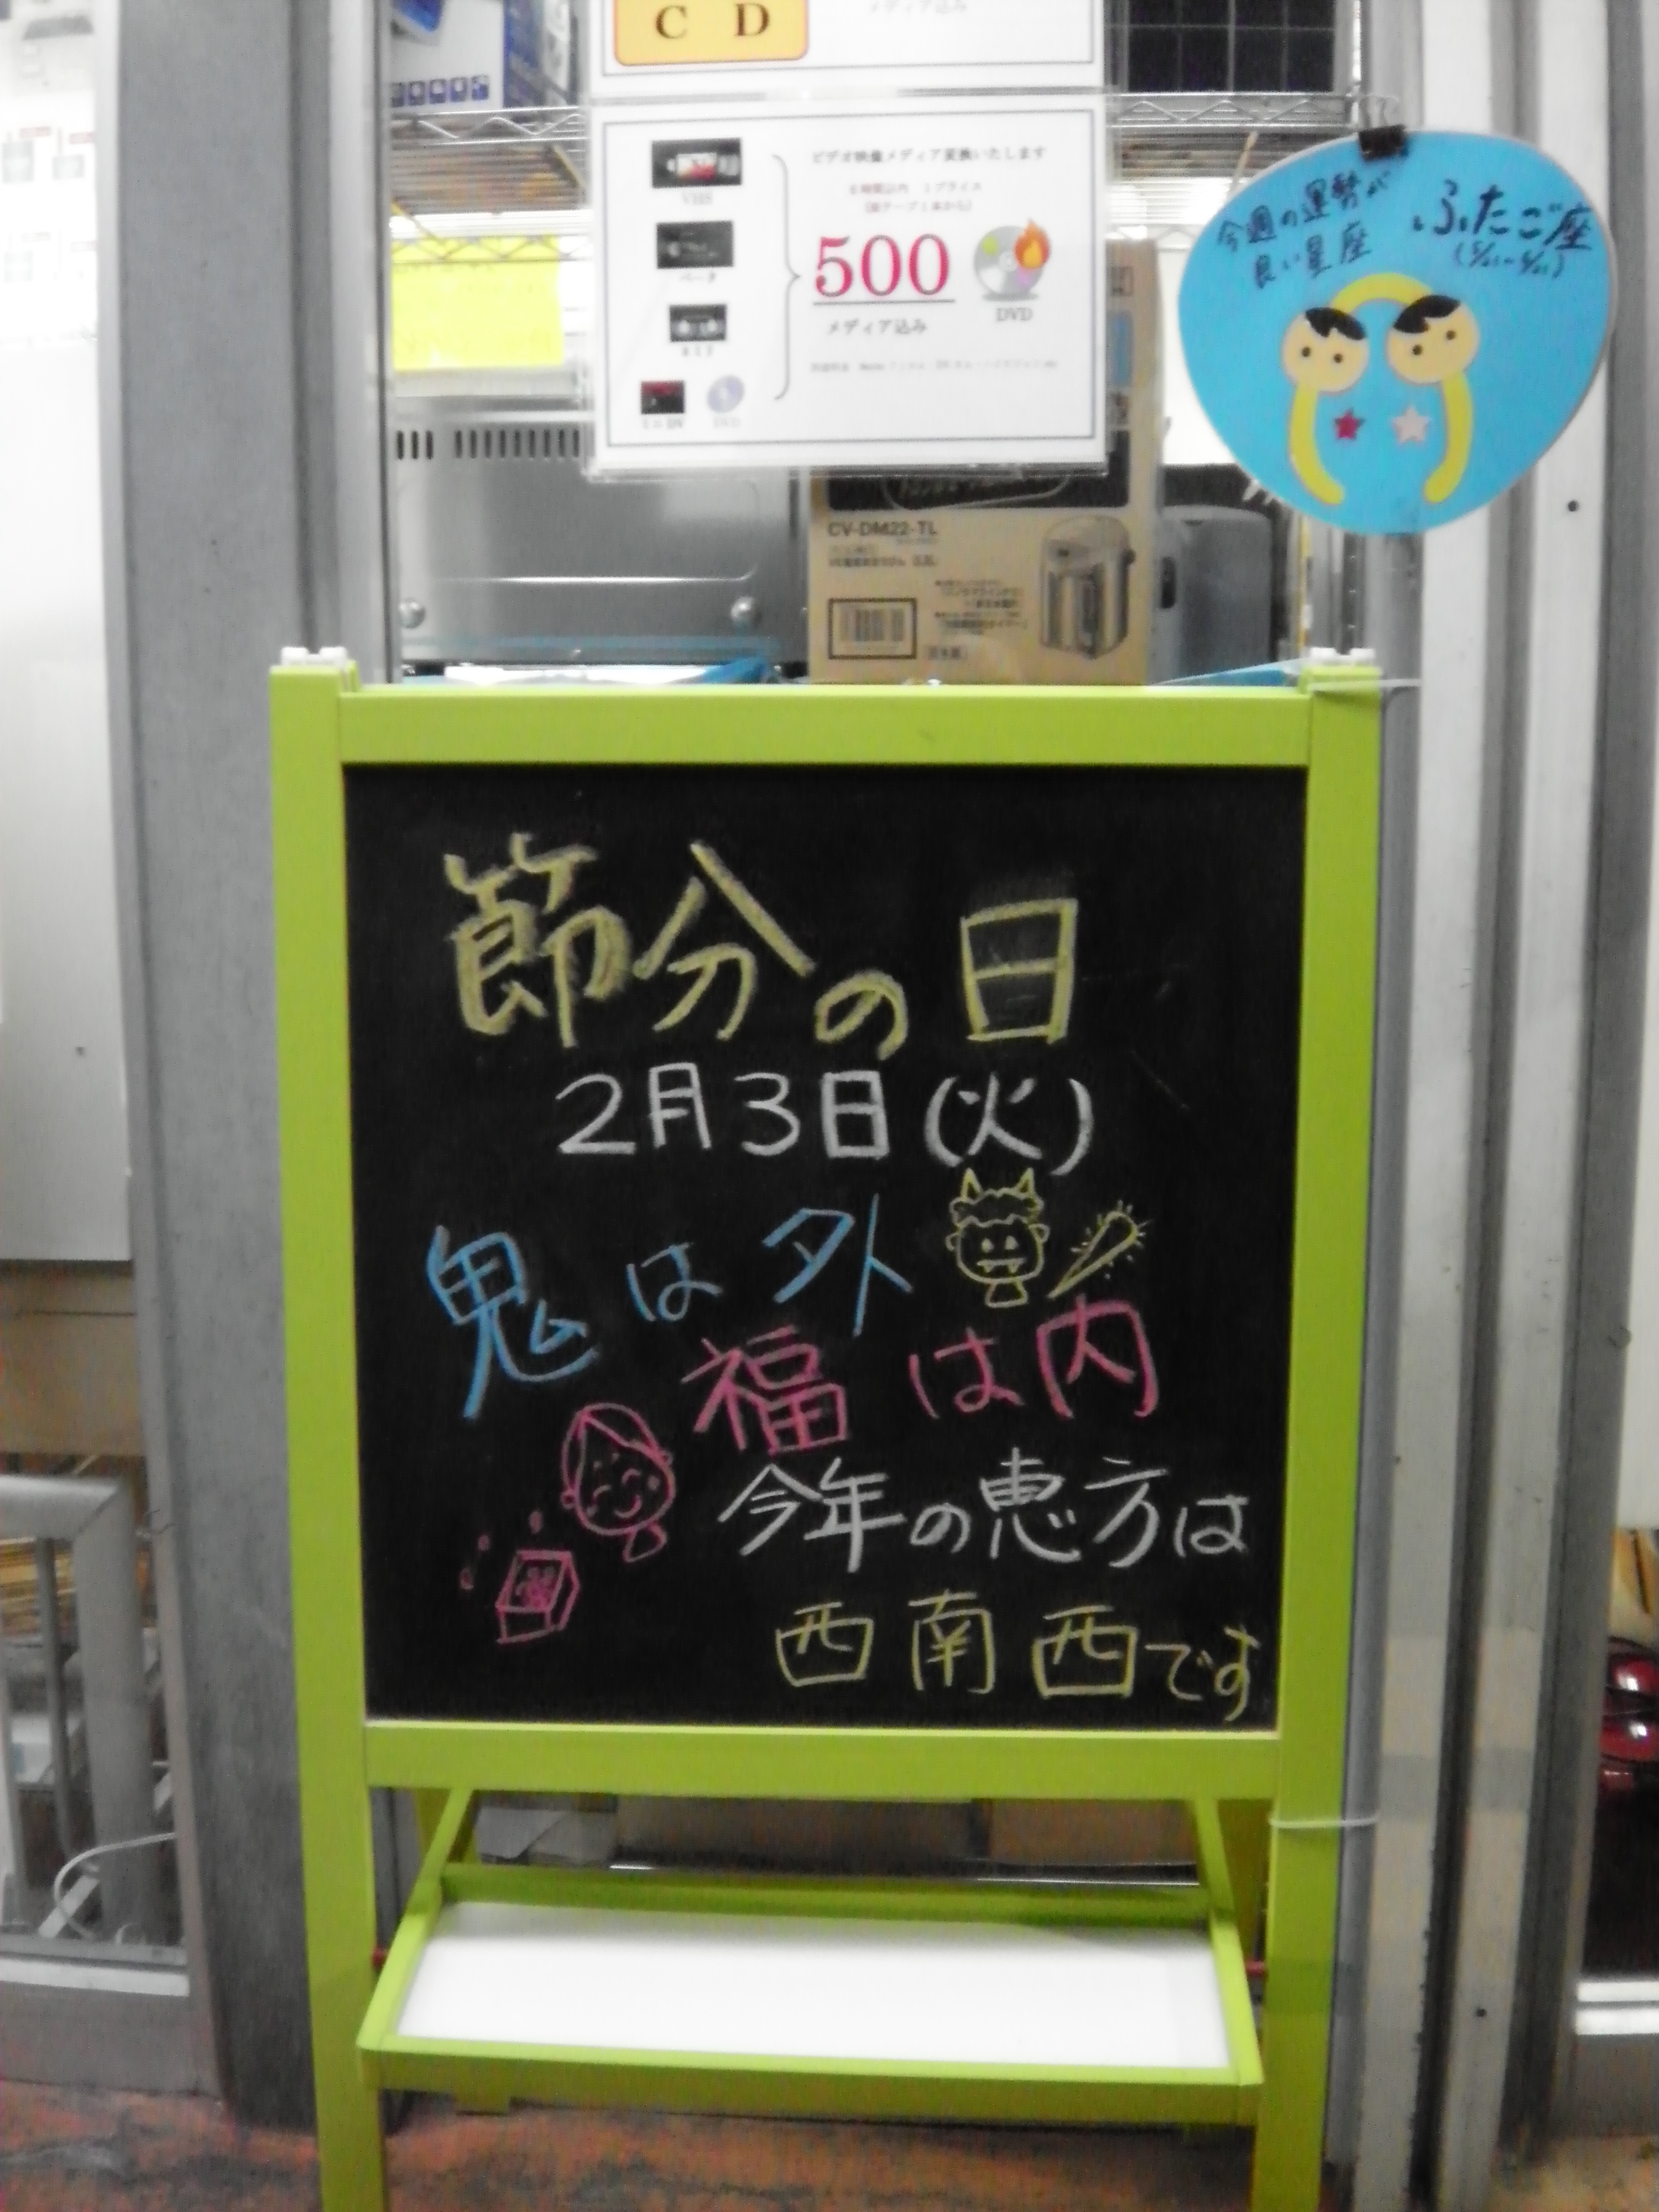 C D
メディア込み
ビデオ映像メディア変換いたします
VHS
500
メディア込み
DVD
DVD
今週の運勢が
良い星座
ふたご座
CV-DM22-TL
節分の日
2月3日(火)
鬼は外
福は内
今年の恵方は
西南西です